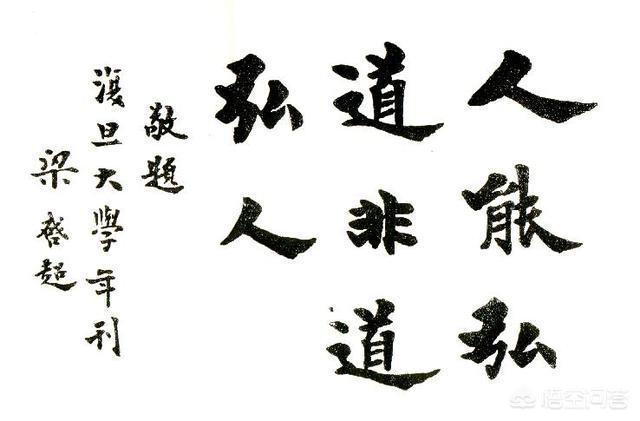 人能弘
道非道
弘人
敬題
復旦大學年刊
梁啓超
悟空问答